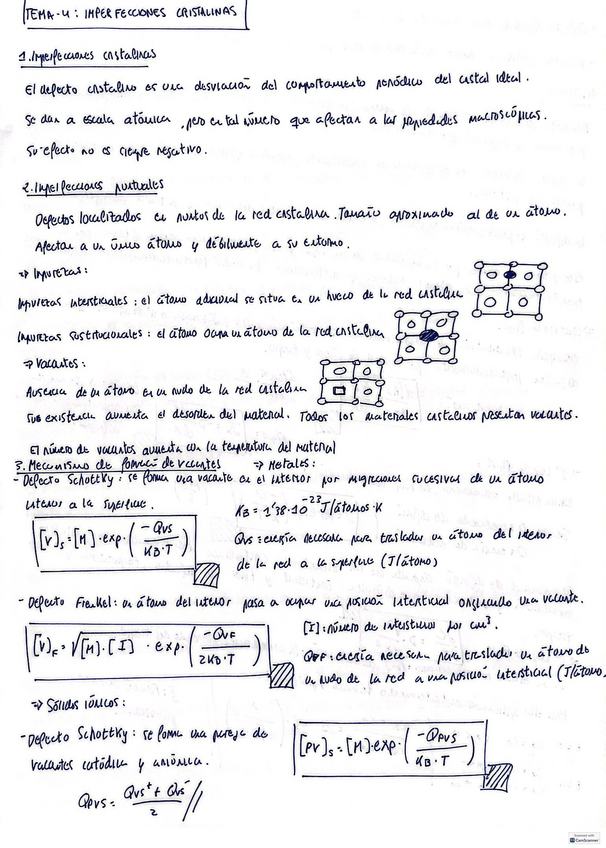 TEMA-4: IMPERFECCIONES CRISTALINAS
1. Imperfecciones cristalinas
El defecto cristalino es una desviación del comportamiento periódico del cristal ideal.
Se dan a escala atómica, pero en tal número que afectan a las propiedades macroscópicas.
Su efecto no es siempre negativo.
2. Imperfecciones puntuales
Defectos localizados en puntos de la red cristalina. Tamaño aproximado al de un átomo.
Afectan a un único átomo y débilmente a su entorno.
⇒ Impurezas:
Impurezas intersticiales: el átomo adicional se situa en un hueco de la red cristalina
Impurezas sustitucionales: el átomo ocupa un átomo de la red cristalina
⇒ Vacantes:
Ausencia de un átomo en un nudo de la red cristalina
Su existencia aumenta el desorden del material. Todos los materiales cristalinos presentan vacantes.
El número de vacantes aumenta con la temperatura del material
3. Mecanismo de formación de vacantes ⇒ Metales:
- Defecto Schottky: se forma una vacante en el interior por migraciones sucesivas de un átomo
interior a la superficie.
[V]s = [M]·exp·(-Qvs / KB·T)
KB = 1'38·10^-23 J/átomos·K
Qvs: energía necesaria para trasladar un átomo del interior
de la red a la superficie (J/átomo)
- Defecto Frenkel: un átomo del interior pasa a ocupar una posición intersticial originando una vacante.
[V]F = √[M]·[I] · exp·(-QvF / 2KB·T)
[I]: número de intersticios por cm³.
QvF: energía necesaria para trasladar un átomo de
un nudo de la red a una posición intersticial (J/átomo)
⇒ Sólidos iónicos:
- Defecto Schottky: se forma una pareja de
vacantes catódica y aniónica.
[PV]s = [M]·exp·(-QPVS / KB·T)
QPVS = Qvs⁺ + Qvs⁻ / 2 //
Scanned with
CamScanner